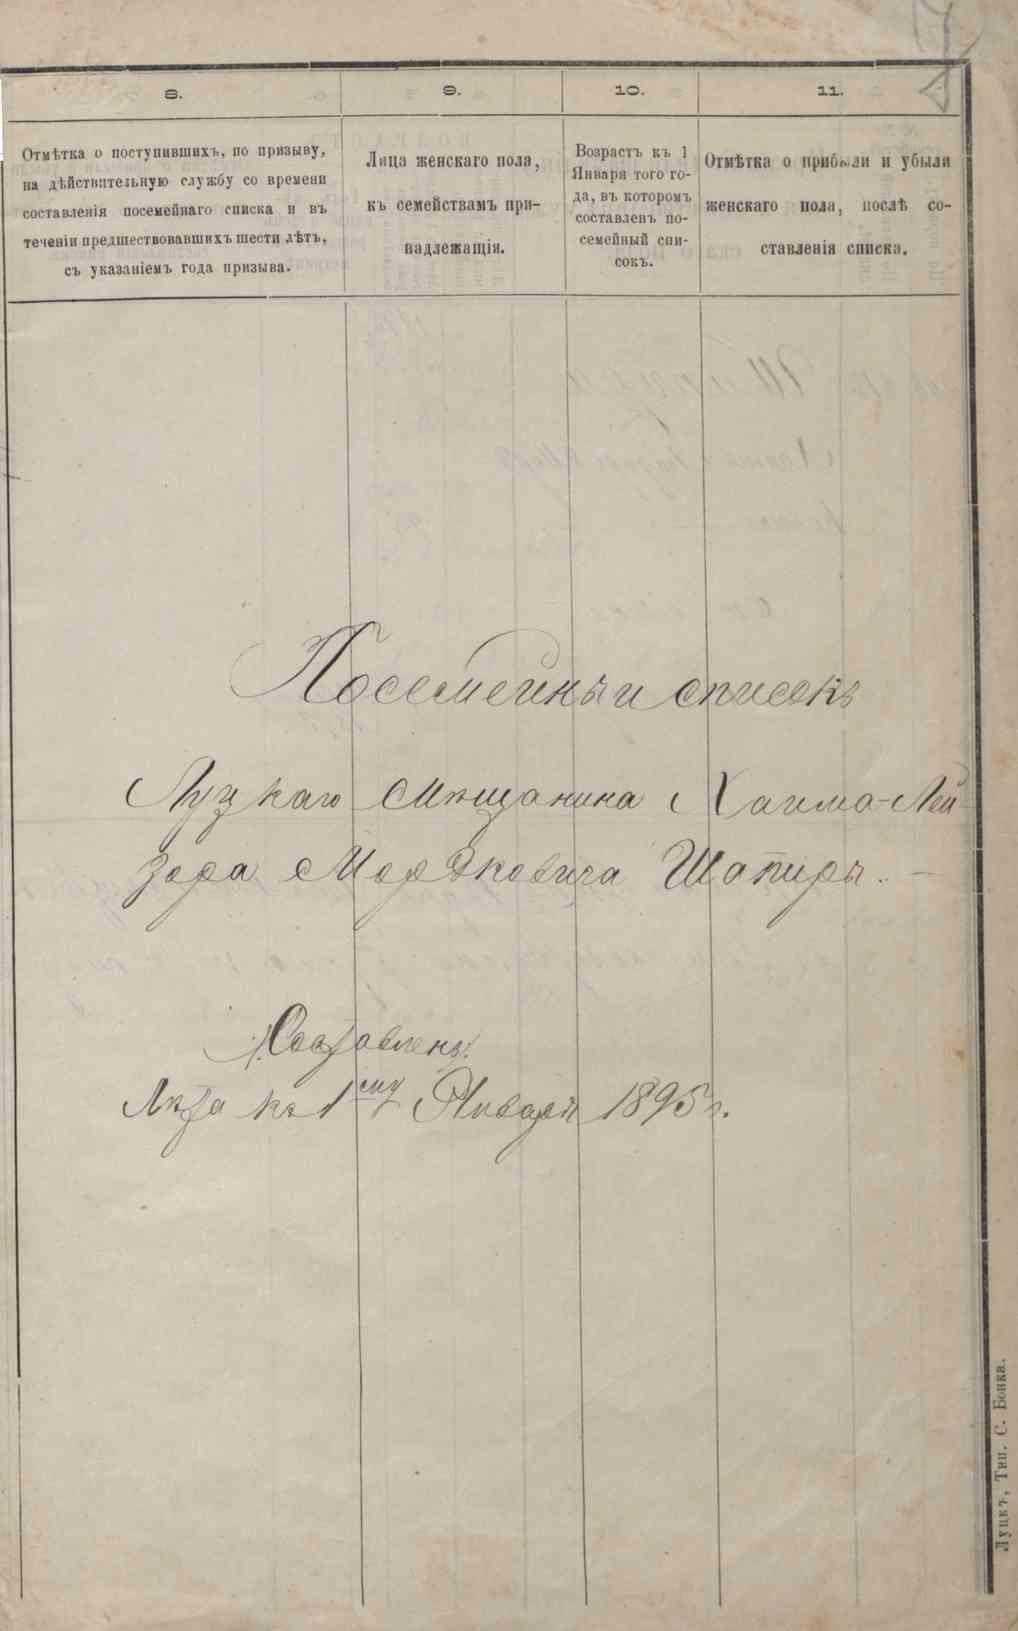 8.
9.
10.
11.
Отмѣтка о поступившихъ, по призыву,
на дѣйствительную службу со времени
составленія посемейнаго списка и въ
теченіи предшествовавшихъ шести лѣтъ,
съ указаніемъ года призыва.
Лица женскаго пола,
къ семействамъ при-
надлежащія.
Возрастъ къ 1
Января того го-
да, въ которомъ
составленъ по-
семейный спи-
сокъ.
Отмѣтка о прибыли и убыли
женскаго пола, послѣ со-
ставленія списка.
Посемейный списокъ
Луцкаго Мѣщанина Хаима-Лей
зора Мордковича Шапиры.
Составленъ
Лѣта къ 1му Января 1895 г.
Луцкъ, Тип. С. Бонка.